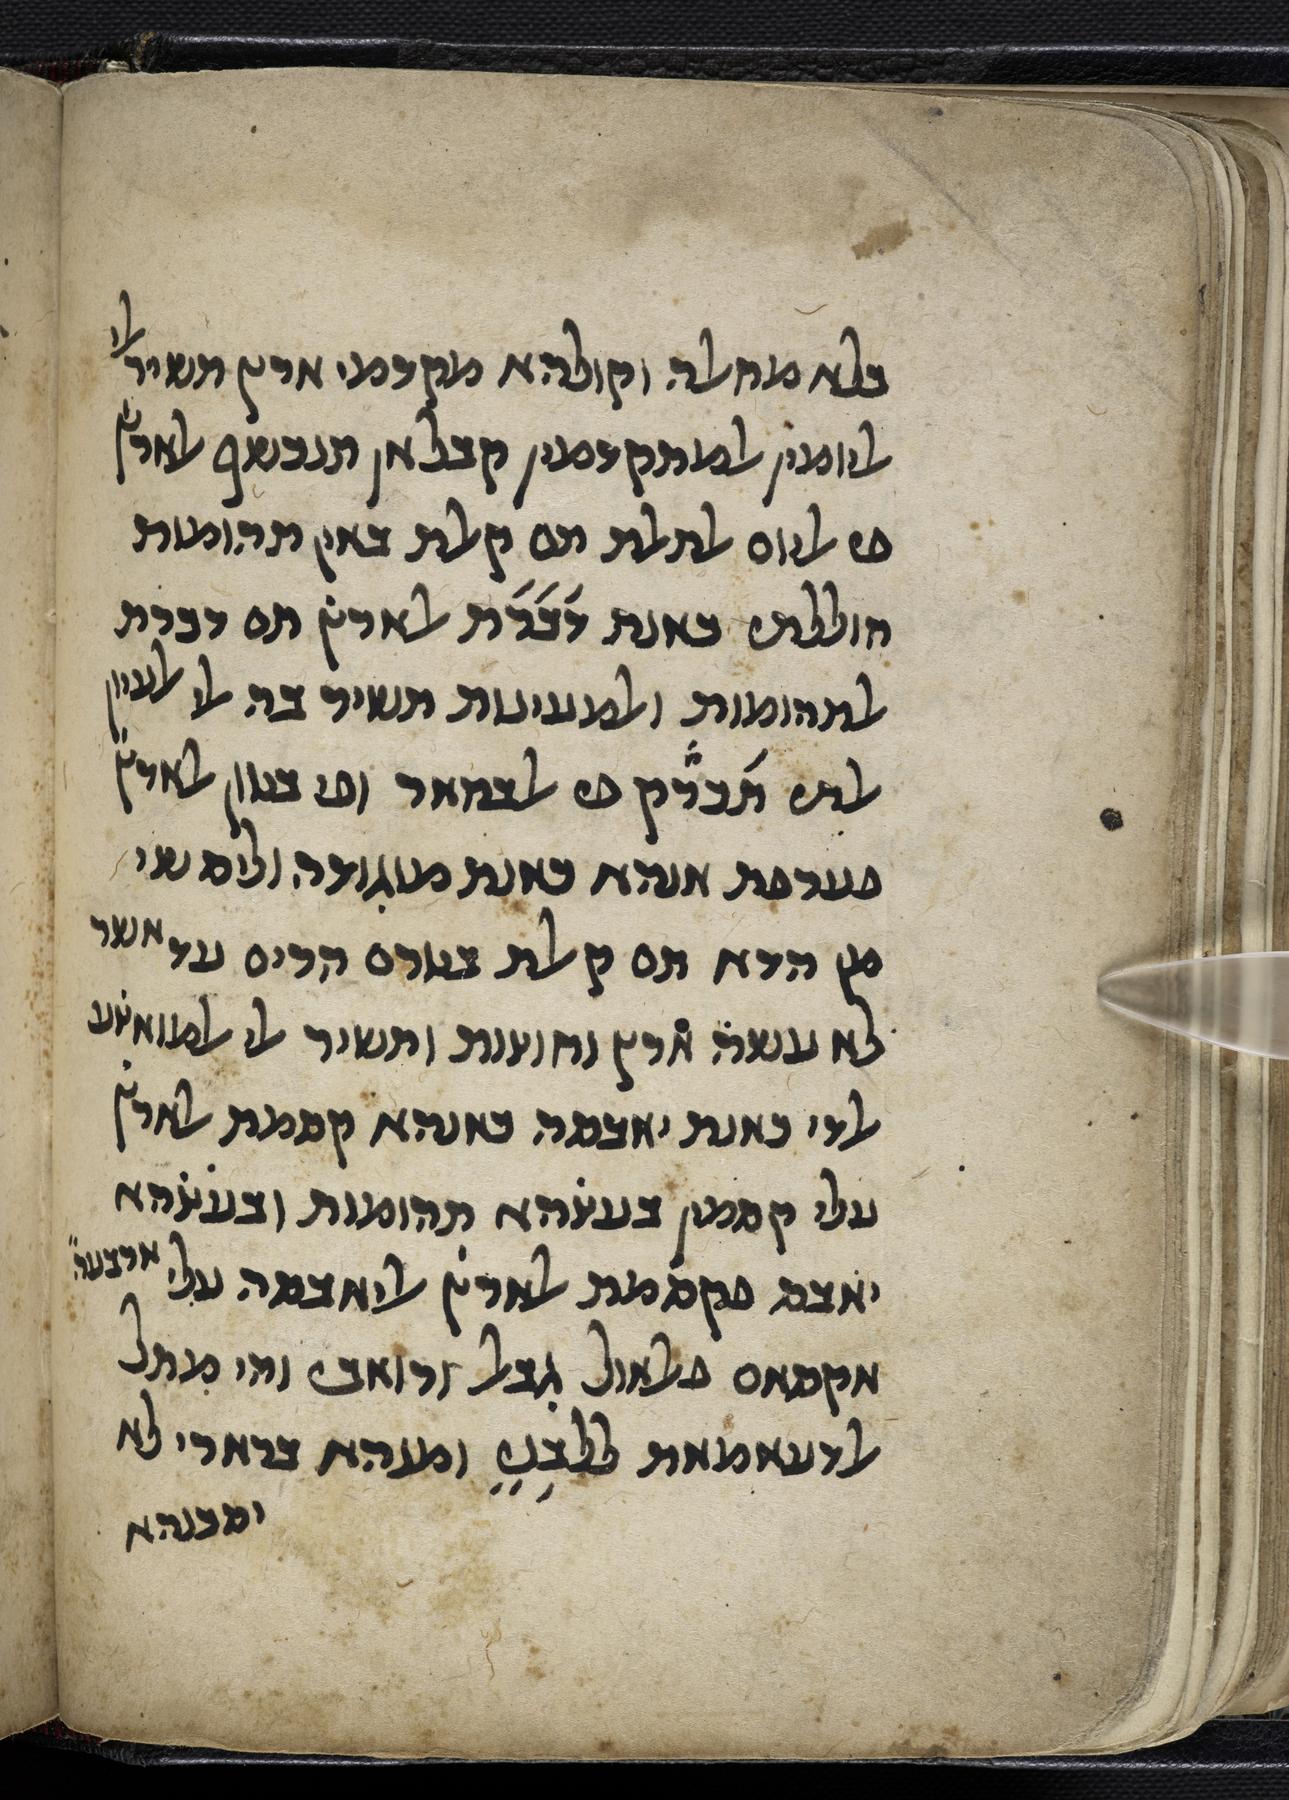 בלא מחאלה וקולהא מקדמי ארץ תשיר אלי
אליומין אלמתקדמין קבל אן תנכשף אלארץ̇
פי אליום אלתאלת תם קאלת באין תהומות
חוללתי כאנת דברת אלארץ̇ תם דברת
אלתהומות ואלמעינות תשיר בה אלי אלעיון
אלתי תכרק פי אלבחאר ופי בטון אלארץ̇
פערפת אנהא כאנת מוג̇ודה וליס שי
מן הדא תם קאלת בטרם הרים עד אשר
לא עשה ארץ וחוצות ותשיר אלי אלמואצ̇ע
אלדי כאנת יאבסה כאנהא קסמת אלארץ̇
עלי קסמין בעצ̇הא תהומות ובעצ̇הא
יאבס פקסמת אלארץ̇ אליאבסה עלי ארבעה̈
אקסאם פאלאול ג̇באל ורואבי והי מתל
אלדעאמאת ללבני ומנהא בראדי לא
יסכנהא